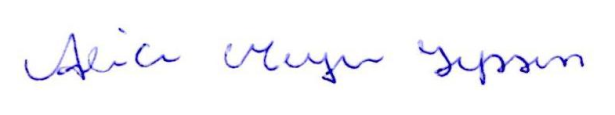 Alice Meyer Jepsen